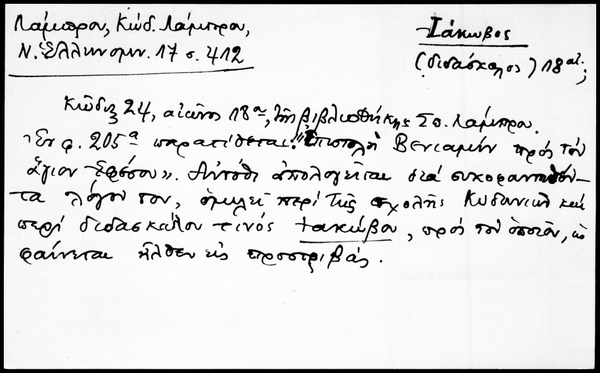 Λάμπρου, Κώδ. Λάμπρου,
Ν. Ἑλληνομν. 17 σ. 412
Ἰάκωβος
(διδάσκαλος) 18 αἰ.;
Κῶδιξ 24, αἰῶνος 18ου, τῆς βιβλιοθήκης Σπ. Λάμπρου.
Ἐν φ. 205α παρατίθεται: "Ἐπιστολὴ Βενιαμὶν πρὸς τὸν
ἅγιον Ἐφέσου». Αὐτόθι ἀπολογεῖται διὰ συκοφαντηθέν-
τα λόγον του, ὁμιλεῖ περὶ τῆς σχολῆς Κυδωνιῶν καὶ
περὶ διδασκάλου τινός Ἰακώβου, πρὸς τὸν ὁποῖον, ὡς
φαίνεται ἦλθεν εἰς προστριβάς.